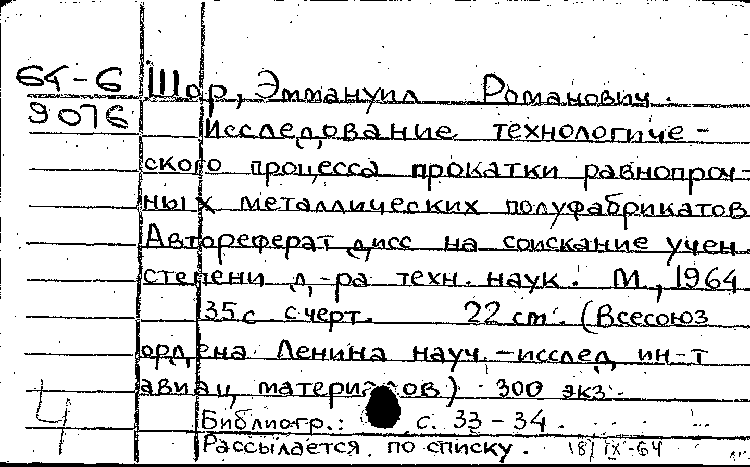 65-6 Шор, Эммануил Романович.
9076 Исследование технологиче-
ского процесса прокатки равнопроч-
ных металлических полуфабрикатов
Автореферат дисс на соискание учен
степени д-ра техн. наук. М, 1964
35 с с черт. 22 см. (Всесоюз
ордена Ленина науч.-исслед ин-т
авиац материалов) 300 экз.
Библиогр.: с. 33-34.
4 Рассылается по списку. 18/IX-64